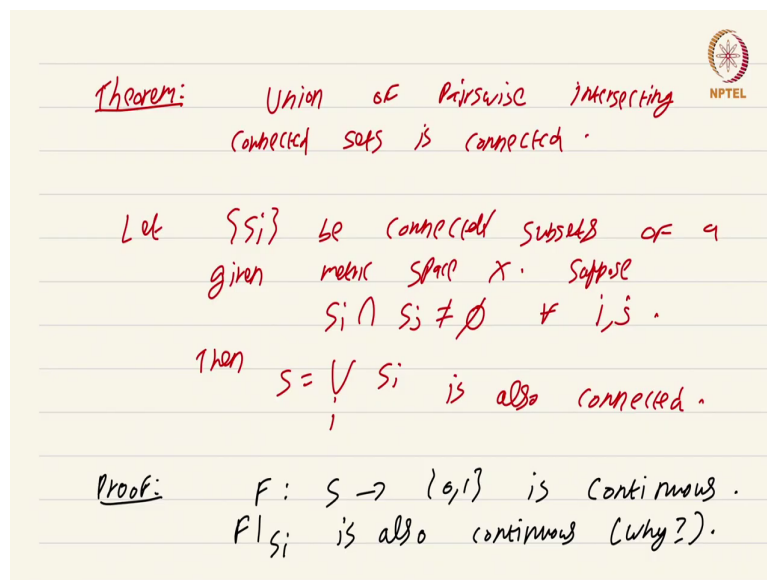 Theorem: Union of Pairwise intersecting
connected sets is connected.
NPTEL
Let {Si} be connected subsets of a
given metric space X. Suppose
Si ∩ Sj ≠ ∅ ∀ i,j.
Then
S = ⋃ Si is also connected.
i
Proof: F: S → {0,1} is continuous.
F|Si is also continuous (Why?).